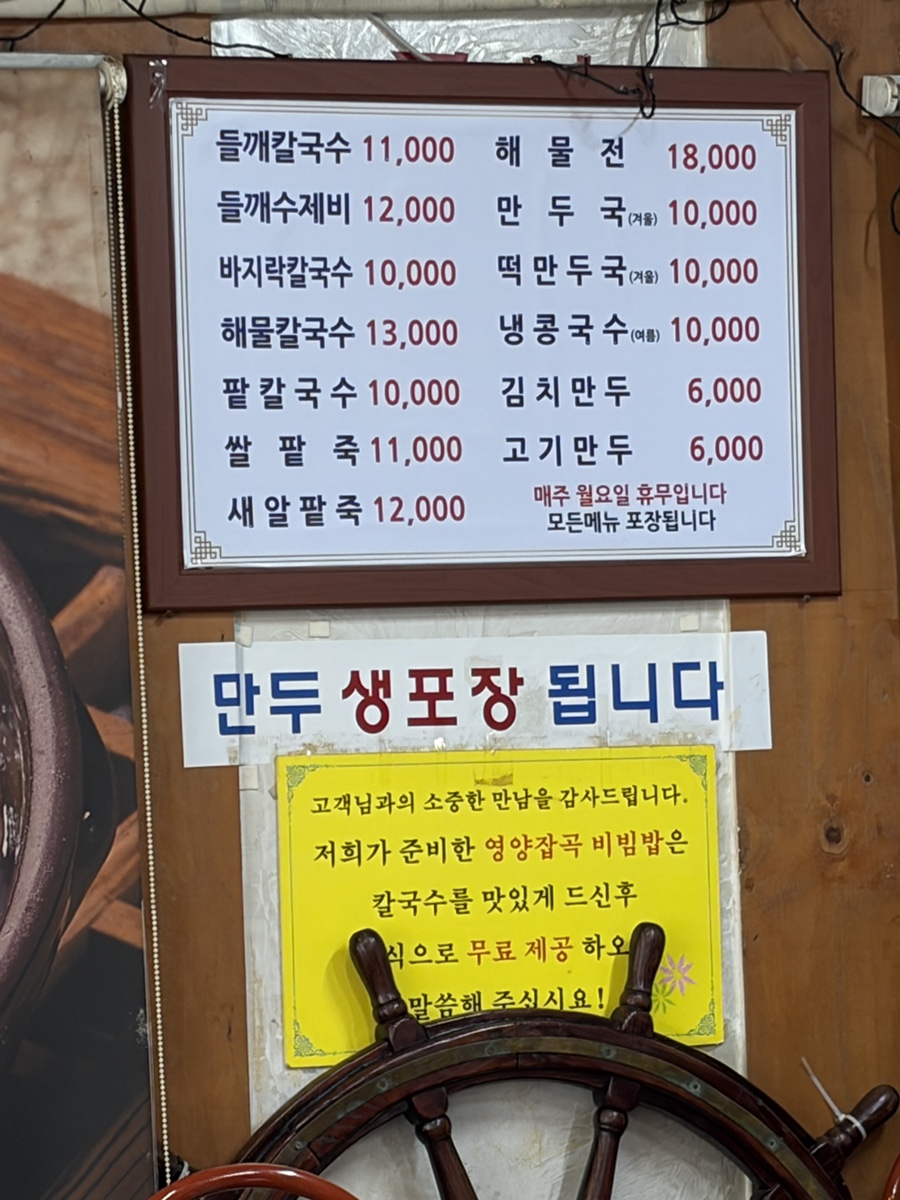 들깨칼국수 11,000
들깨수제비 12,000
바지락칼국수 10,000
해물칼국수 13,000
팥칼국수 10,000
쌀팥죽 11,000
새알팥죽 12,000
해물전 18,000
만두국(겨울) 10,000
떡만두국(겨울) 10,000
냉콩국수(여름) 10,000
김치만두 6,000
고기만두 6,000
매주 월요일 휴무입니다
모든메뉴 포장됩니다
만두 생포장 됩니다
고객님과의 소중한 만남을 감사드립니다.
저희가 준비한 영양잡곡 비빔밥은
칼국수를 맛있게 드신후
식으로 무료 제공 하오
말씀해 주십시요!